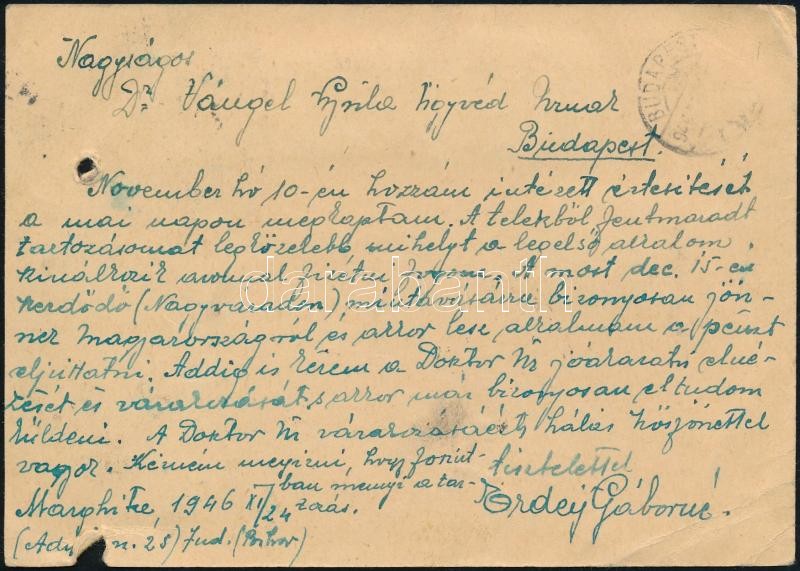 Nagyságos
Dr. Vángel Gyula Ügyvéd Urnak
Budapest.
November hó 10-én hozzám intézett értesítését
a mai napon megkaptam. A telekből fentmaradt
tartozásomat legközelebb mihelyt a legelső alkalom
kinálkozik azonnal fizetni fogom. A most dec. 15-én
kezdődő (Nagyváradon) mintavásárra bizonyosan jön-
nek Magyarországról és akkor lesz alkalmam a pénzt
eljuttatni. Addig is kérem a Doktor Úr jóakaratú elné-
zését és várakozását, s akkor már bizonyosan el tudom
küldeni. A Doktor Úr várakozásáért hálás köszönettel
vagyok. Kérném megirni, hogy forint-
ban mennyi a tar-
tozás.
tisztelettel
Erdey Gáborné.
Marghita 1946 XI/24
n. 25) Jud. (Bihor)
BUDAPEST
darabanth